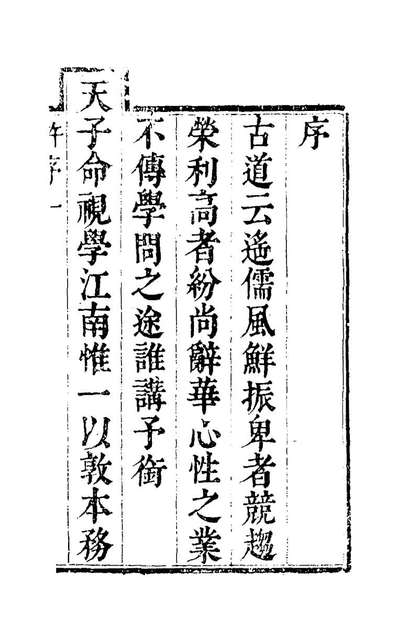 序
古道云遙儒風鮮振卑者競趨
榮利高者紛尚辭華心性之業
不傳學問之途誰講予銜
天子命視學江南惟一以敦本務
許序一